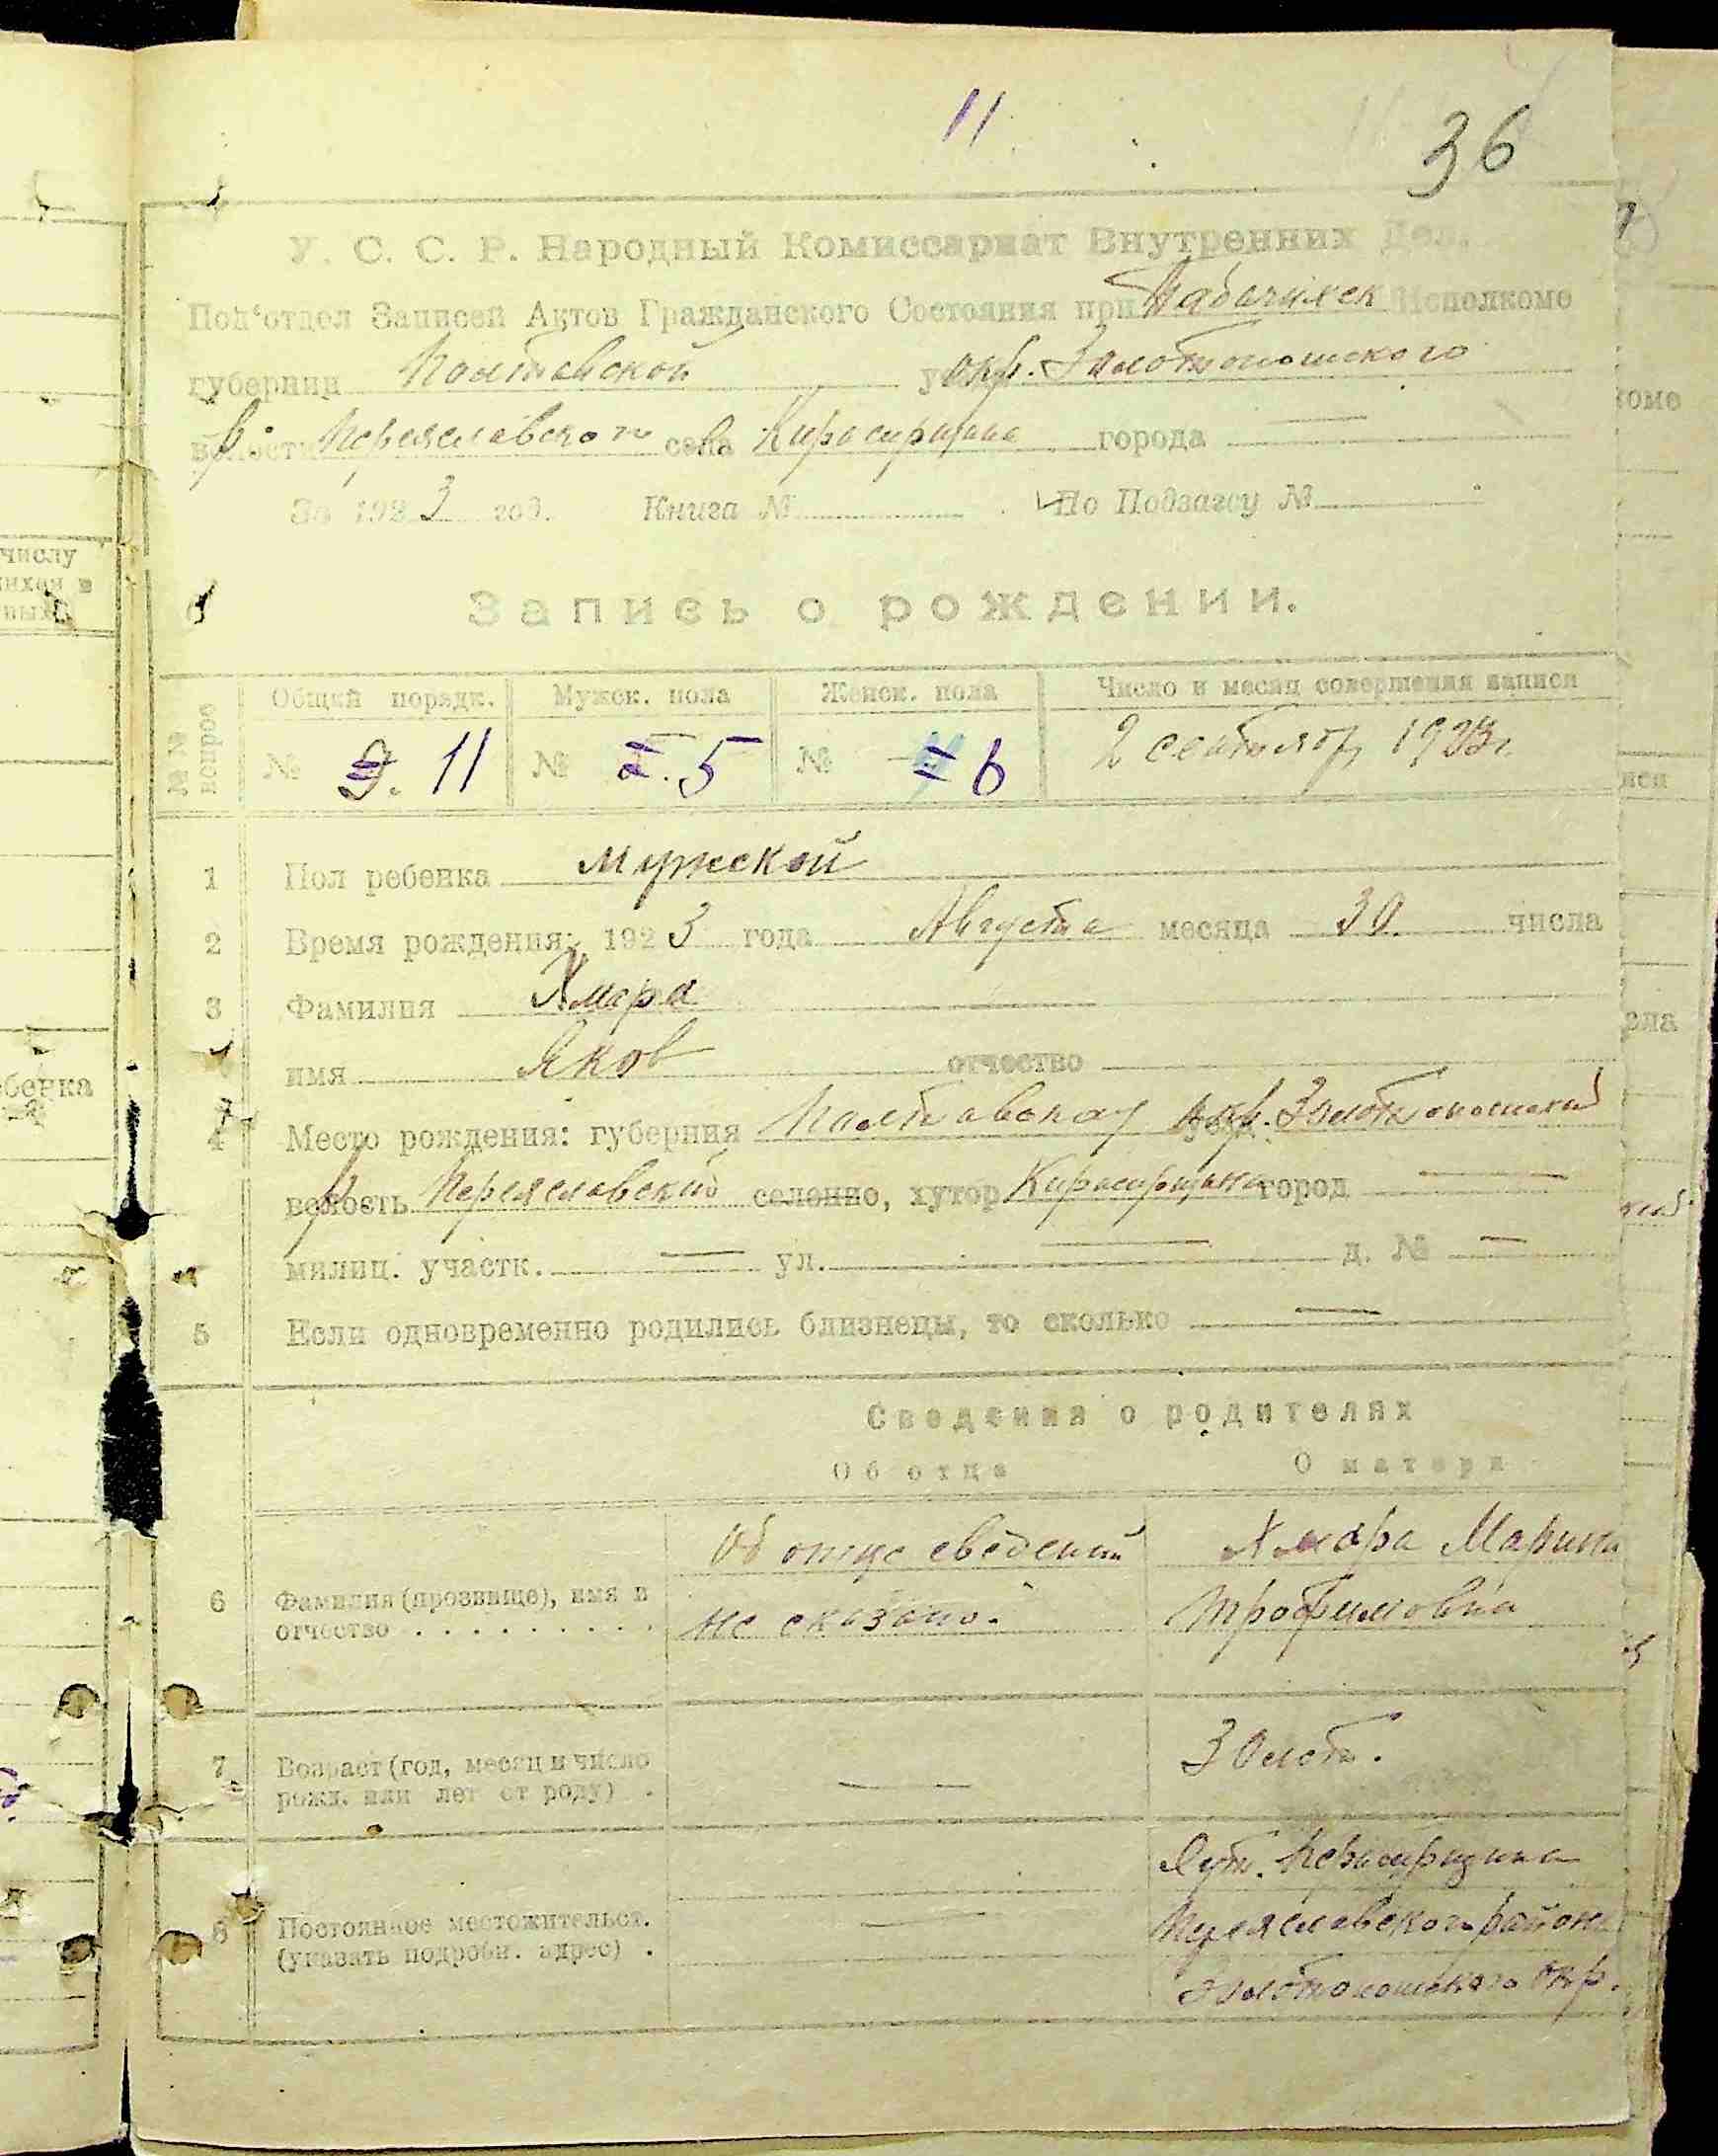 11
36
У. С. С. Р. Народный Комиссариат Внутренних Дел.
Под'отдел Записей Актов Гражданского Состояния при Исполкоме
губернии Полтавской окр. Золотоношского
р. Переяславского села города —
За 1923 год. Книга № По Подзагсу №
Запись о рождении.
№ № вопрос Общий порядк. Мужск. пола Женск. пола Число и месяц совершения записи
№ 11 № 5 № 6 2 сентября 1923 г.
1 Пол ребенка мужской
2 Время рождения: 1923 года Августа месяца 30 числа
3 Фамилия Хмара
имя Яков отчество
4 Место рождения: губерния Полтавская окр. Золотоношский
волость Переяславский селение, хутор город —
милиц. участк. — ул. — д. № —
5 Если одновременно родились близнецы, то сколько —
Сведения о родителях
Об отце О матери
Об отце сведений Хмара Марина
6 Фамилия (прозвище), имя и
отчество . . . . . . . . . не сказано. Трофимовна
7 Возраст (год, месяц и число
рожд. или лет от роду) . — 30 лет.
Хут.
8 Постоянное местожительст.
(указать подробн. адрес) . — Переяславского района
Золотоношского окр.